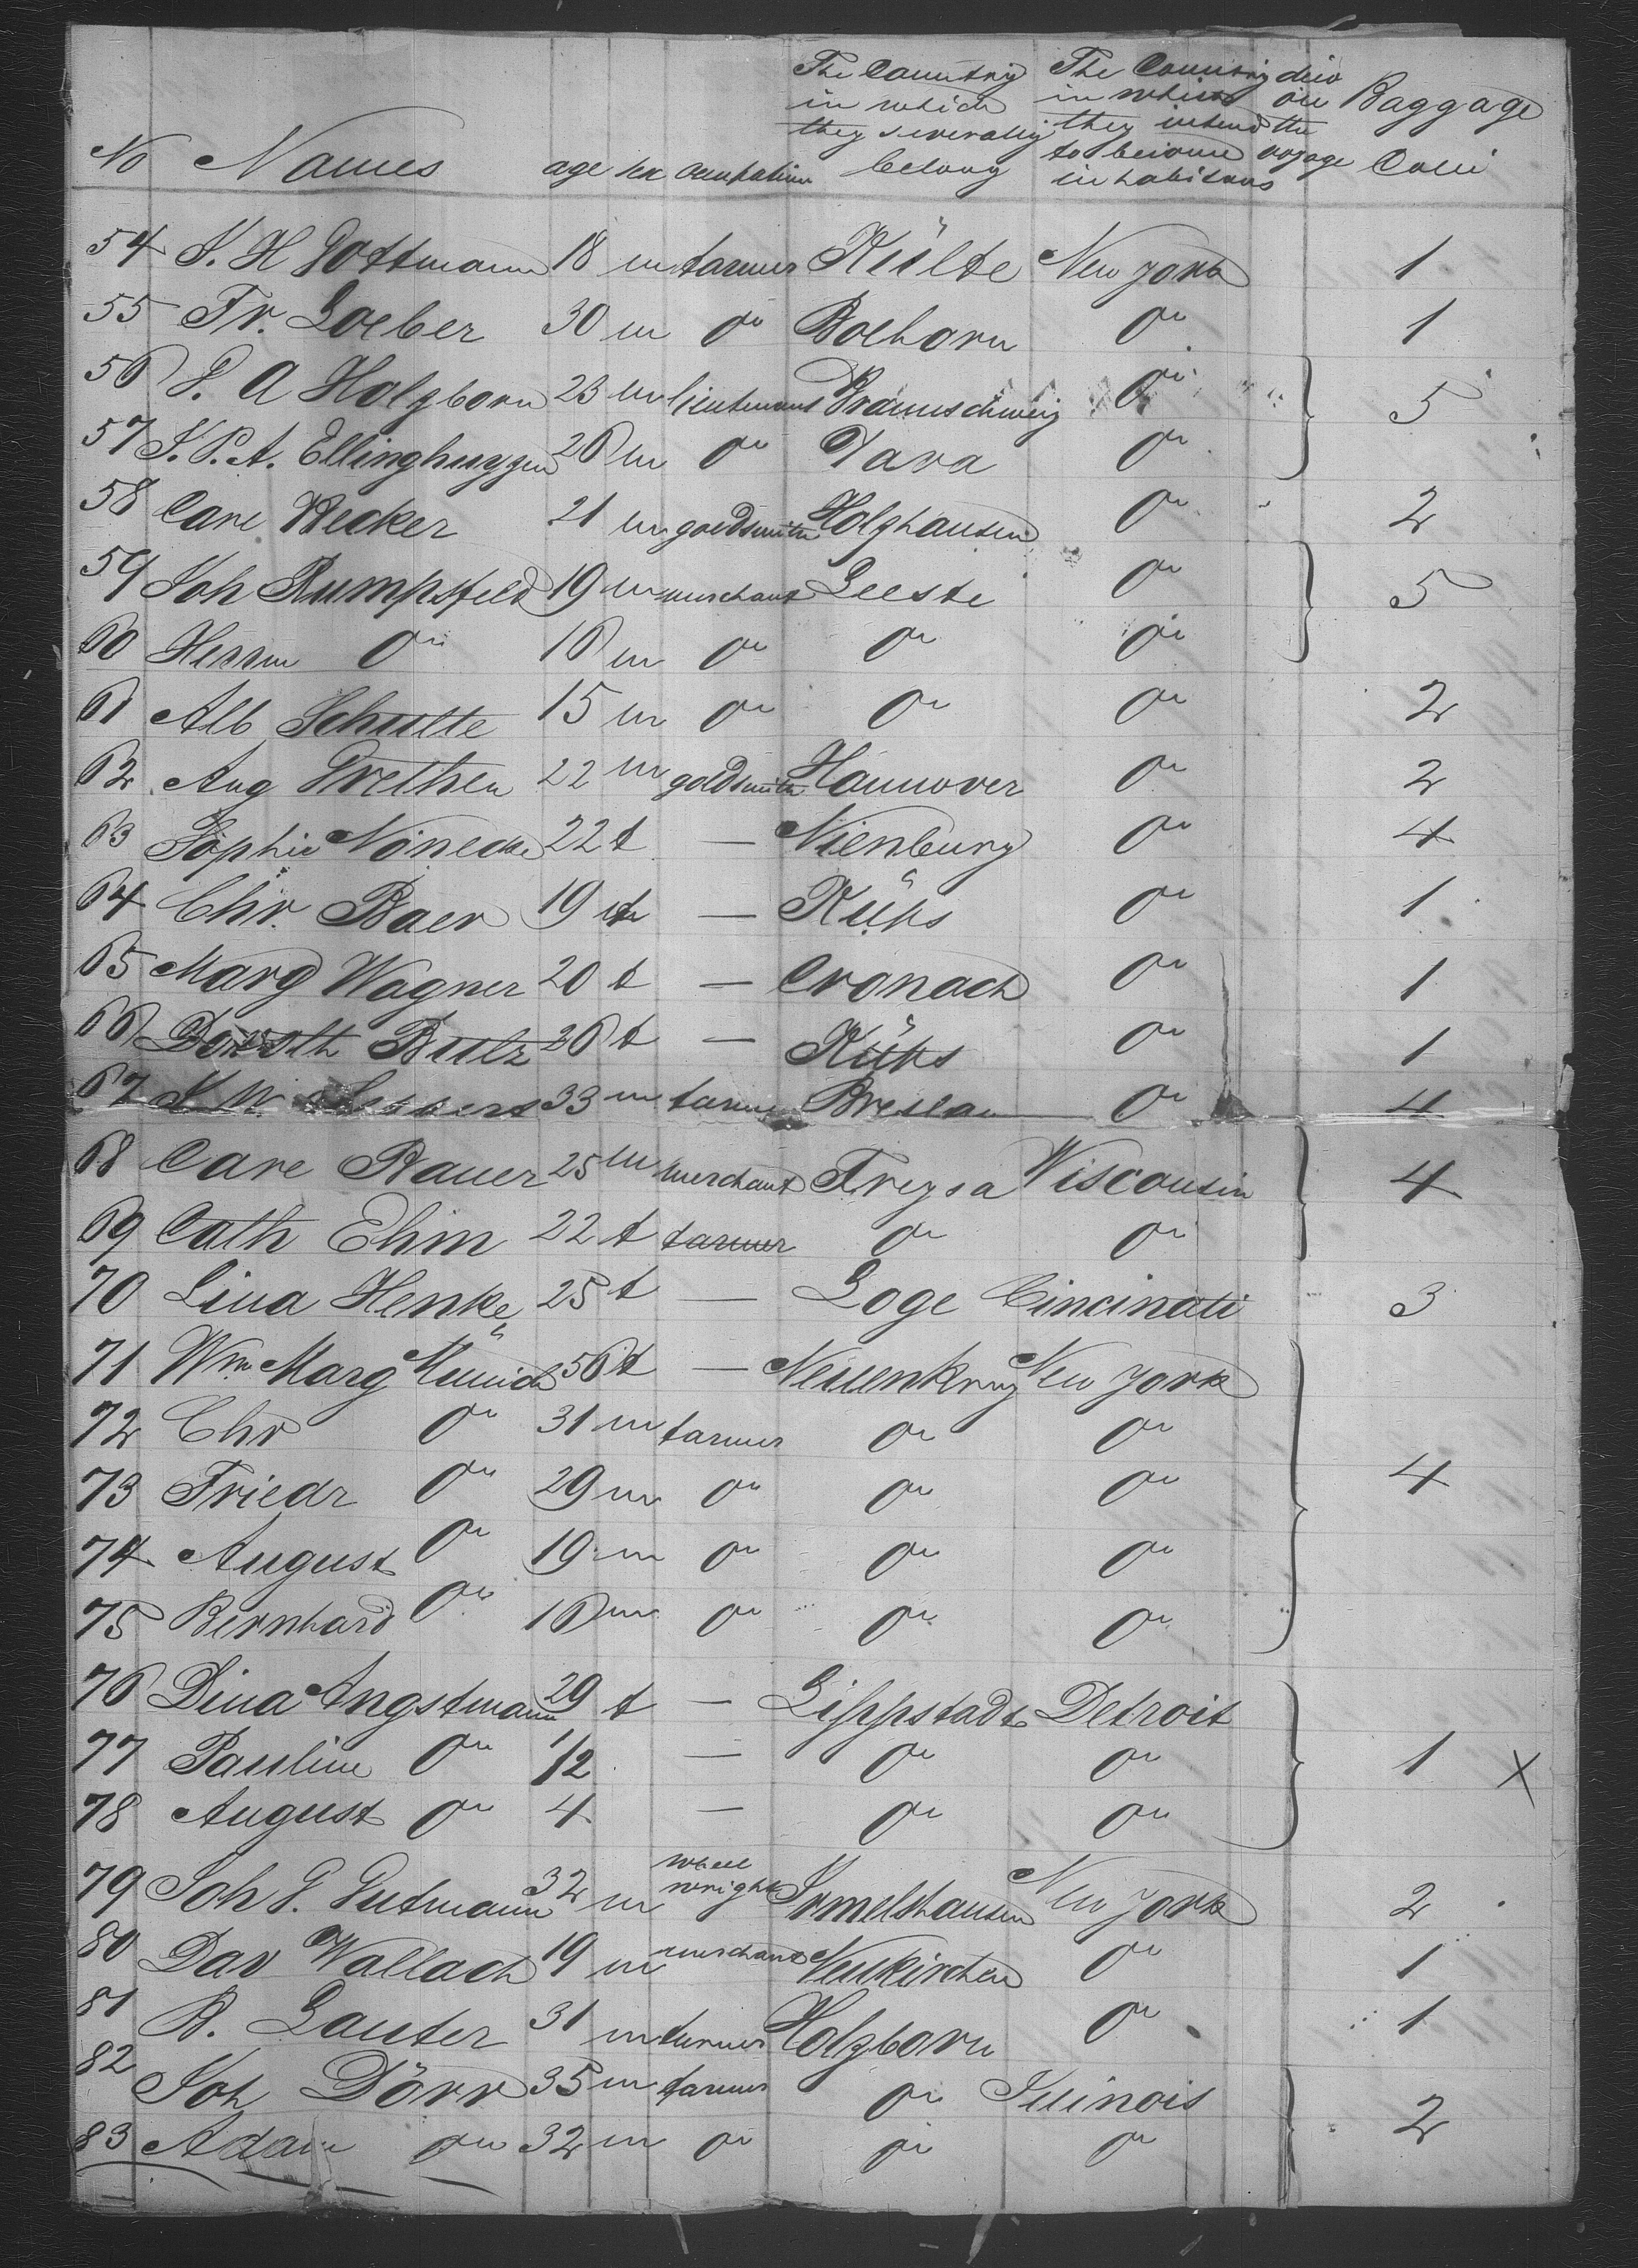 The Country The Country died
in which in which on Baggage
they severally they intend the
No Names age sex occupation belong to become voyage Colli
inhabitans
54 J. H Gottmann 18 m farmer Külte New york 1
55 Fr. Loeber 30 m do Boehorn do 1
56 L. A Holzborn 23 m lieutenant Braunschweig do 5
57 J. P. A. Ellinghuyzen 26 m do Java do
58 Carl Becker 21 m goldsmith Holzhausen do 2
59 Joh Rumpsfeld 19 m merchant Leeste do 5
60 Herm do 16 m do do do
61 Alb Schulte 15 m do do do 2
62 Aug Grethen 22 m goldsmith Hannover do 2
63 Sophie Nönecke 22 f — Nienburg do 4
64 Chr. Baer 19 f — Küps do 1
65 Marg Wagner 20 f — Cronach do 1
66 Doroth Bulz 26 f — Küps do 1
67 J W 33 m farmer Breslau do 4
68 Carl Bauer 25 m merchant Treysa Wisconsin 4
69 Cath Ehm 22 f farmer do do
70 Lina Henke 25 f — Loge Cincinati 3
71 Wm Marg Münich 56 f — Neuenkrug New york
72 Chr do 31 m farmer do do
73 Friedr do 29 m do do do 4
74 August do 19 m do do do
75 Bernhard do 16 m do do do
76 Dina Angstmann 29 f — Lippstadt Detroit
77 Pauline do 1/2 — do do 1 X
78 August do 4 — do do
79 Joh G. Gutmann 32 m wheel wright Irmelshausen New york 2
80 Dav Wallach 19 m merchant Neukirchen do 1
81 B. Lauter 31 m turner Holzborn do 1
82 Joh Dörr 35 m farmer do Illinois 2
83 Adam do 32 m do do do